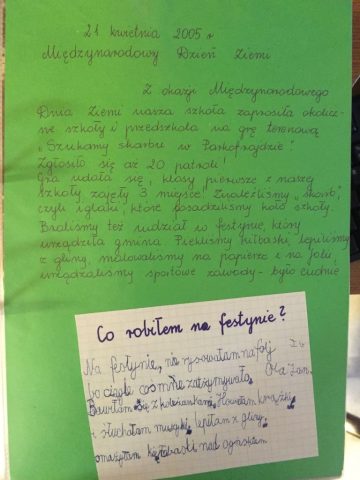 21 kwietnia 2005 r
Międzynarodowy Dzień Ziemi
Z okazji Międzynarodowego
Dnia Ziemi nasza szkoła zaprosiła okolicz-
ne szkoły i przedszkola na grę terenową
„Szukamy skarbu w Parkofrajdzie".
Zgłosiło się aż 20 patroli!
Gra udała się, klasy pierwsze z naszej
szkoły zajęły 3 miejsce! Znaleźliśmy „skarb",
czyli iglaki, które posadziliśmy koło szkoły.
Braliśmy też udział w festynie, który
urządziła gmina. Piekliśmy kiłbaski, lepiliśmy
z gliny, malowaliśmy na papierze i na folii,
urządzaliśmy sportowe zawody - było cudnie
Co robiłem na festynie?
Na festynie, nie rysowałam na folj
bo ciągle coś mnie zatrzymywało. Ola
Bawiłam się z koleżankami,
i słuchałam muzyki, lepiłam z gliny,
smażyłam kiełbaski nad ogniskiem